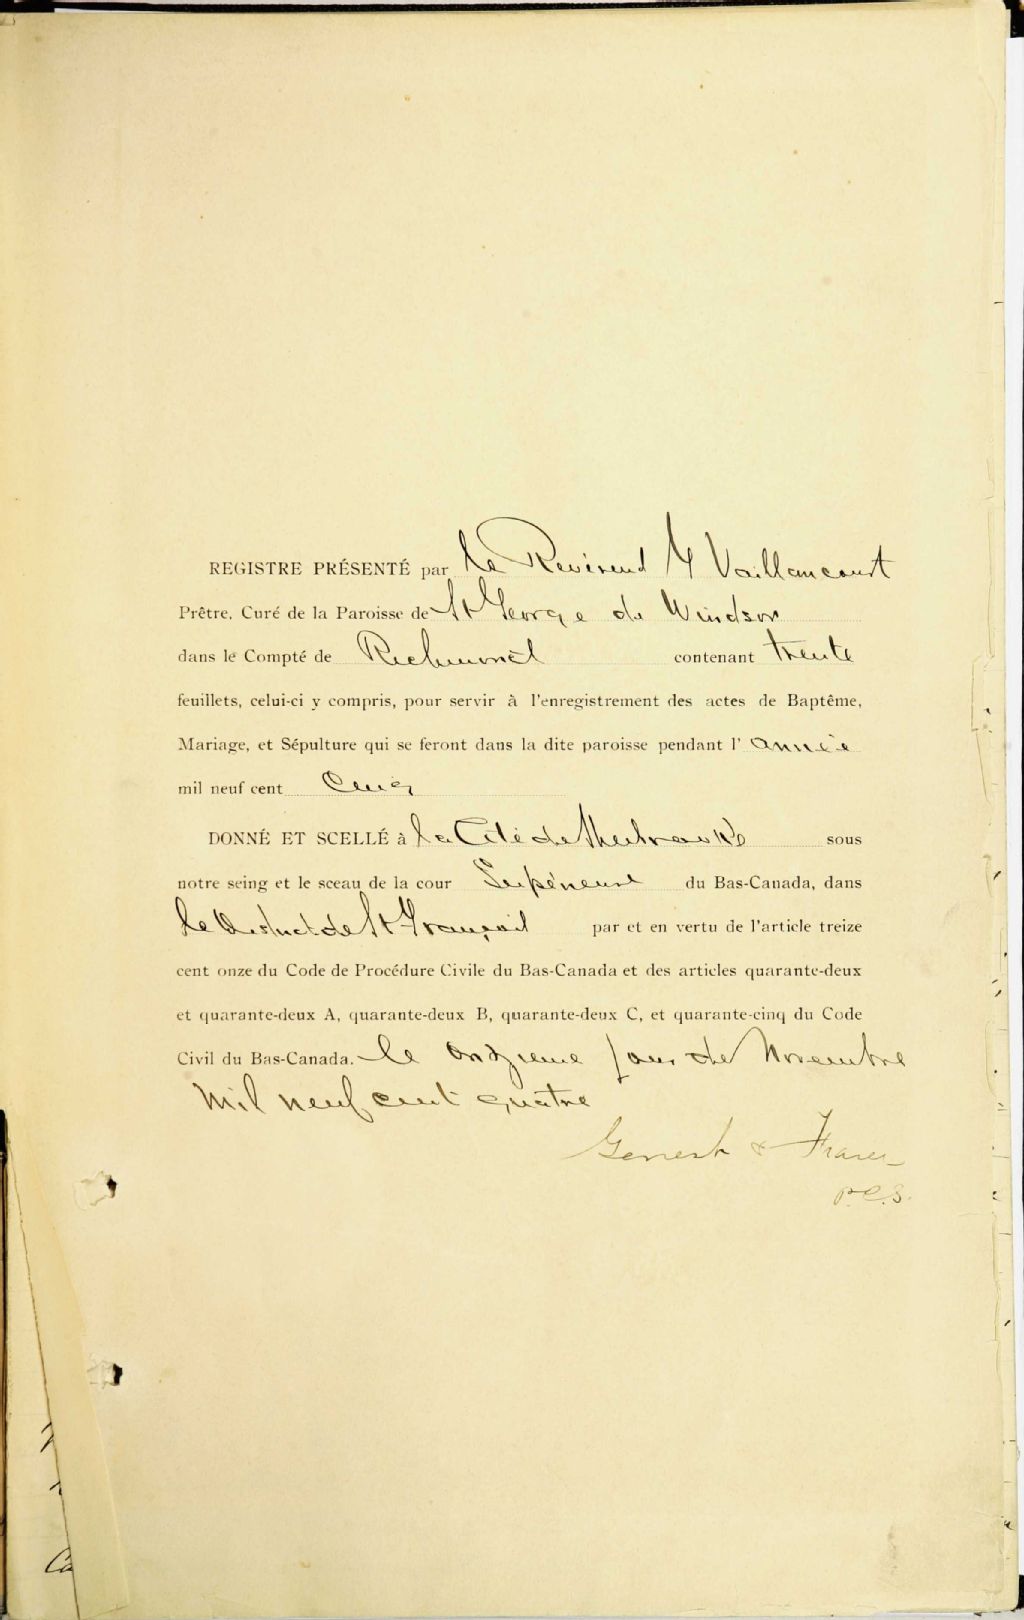 REGISTRE PRÉSENTÉ par le Révérend G Vaillancourt
Prêtre, Curé de la Paroisse de St George de Windsor
dans le Compté de Richmond contenant trente
feuillets, celui-ci y compris, pour servir à l'enregistrement des actes de Baptême,
Mariage, et Sépulture qui se feront dans la dite paroisse pendant l' année
mil neuf cent Cinq
DONNÉ ET SCELLÉ à la Cité de Sherbrooke sous
notre seing et le sceau de la cour Supérieure du Bas-Canada, dans
le District de St François par et en vertu de l'article treize
cent onze du Code de Procédure Civile du Bas-Canada et des articles quarante-deux
et quarante-deux A, quarante-deux B, quarante-deux C, et quarante-cinq du Code
Civil du Bas-Canada. le onzieme jour de Novembre
mil neuf cent quatre
Genest & Fraser
P.C.S.